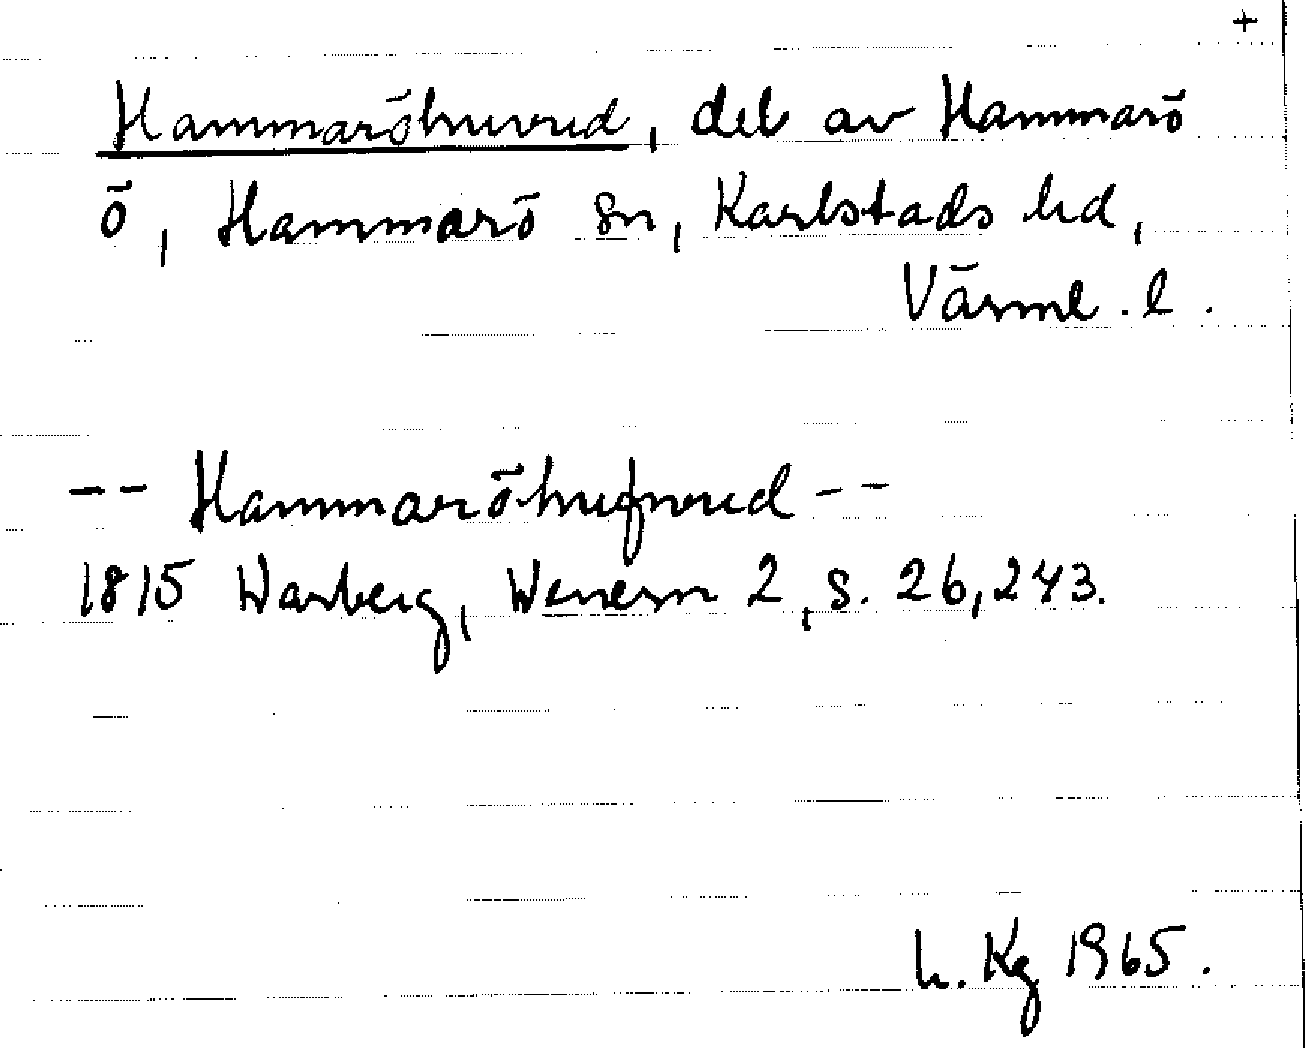 +
Hammaröhuvud, del av Hammarö
ö, Hammarö sn, Karlstads hd,
Värml. l.
-- Hammaröhufwud --
1815 Warberg, Wenern 2, s. 26, 243.
h. Kg 1965.